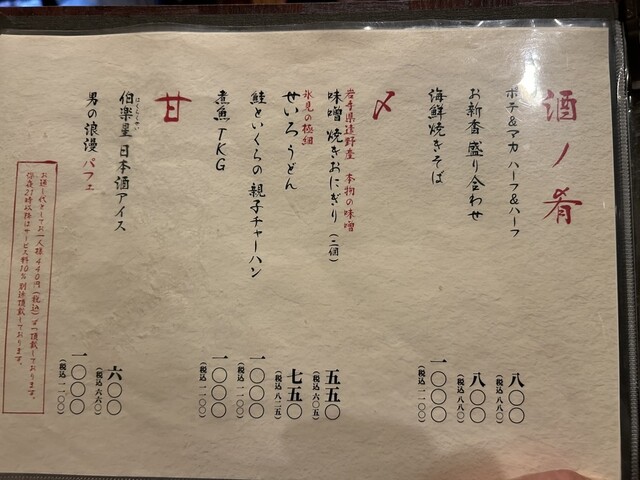 酒ノ肴
ポテ&マカ ハーフ&ハーフ
八〇〇
(税込 八八〇)
お新香盛り合わせ
八〇〇
(税込 八八〇)
海鮮焼きそば
一〇〇〇
(税込 一一〇〇)
〆
岩手県遠野産 本物の味噌
味噌焼きおにぎり(二個)
五五〇
(税込 六〇五)
氷見の極細
せいろうどん
七五〇
(税込 八二五)
鮭といくらの親子チャーハン
一〇〇〇
(税込 一一〇〇)
煮魚TKG
一〇〇〇
(税込 一一〇〇)
甘
はくらくせい
伯楽星 日本酒アイス
六〇〇
(税込 六六〇)
男の浪漫パフェ
一〇〇〇
(税込 一一〇〇)
お通し代としてお一人様440円(税込)ずつ頂戴しております。
深夜21時以降はサービス料10%別途頂戴しております。